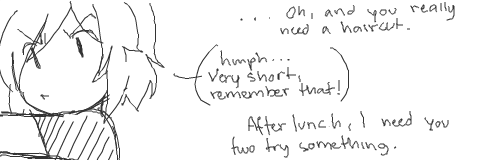 ... Oh, and you really
need a haircut.
humph...
Very short,
remember that!
After lunch, I need you
two try something.